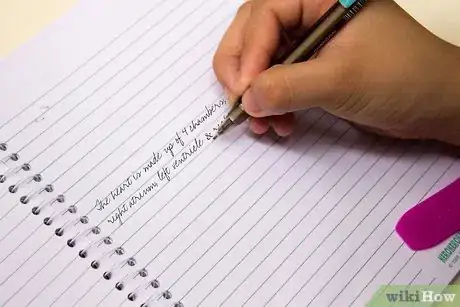 The heart is made up of 4 chambers
right atrium, left ventricle &
wikiHow